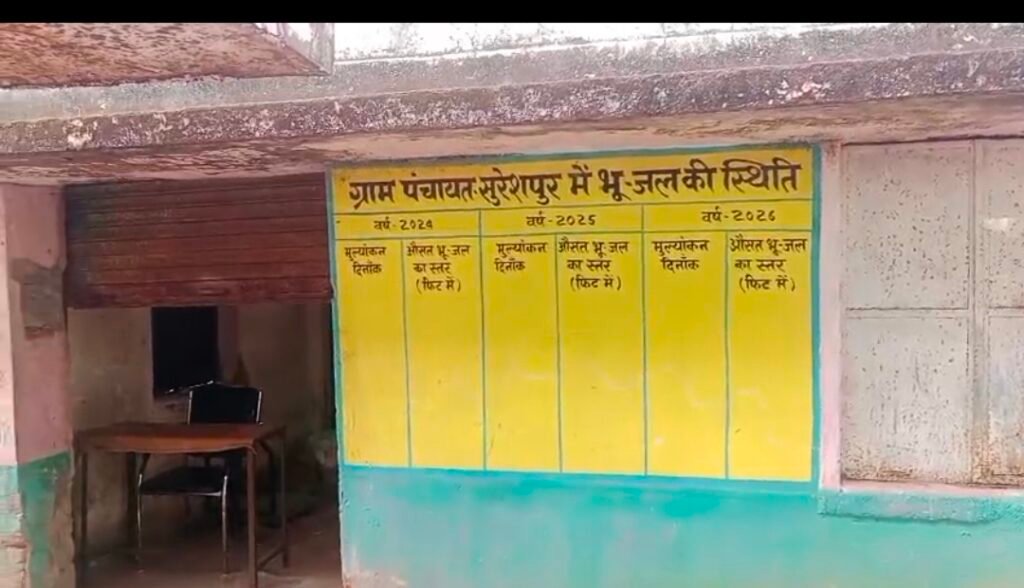 ग्राम पंचायत-सुरेशपुर में भू-जल की स्थिति
वर्ष-2024 वर्ष-2025 वर्ष-2026
मूल्यांकन दिनाँक
औसत भू-जल का स्तर (फिट में)
मूल्यांकन दिनाँक
औसत भू-जल का स्तर (फिट में)
मूल्यांकन दिनाँक
औसत भू-जल का स्तर (फिट में)